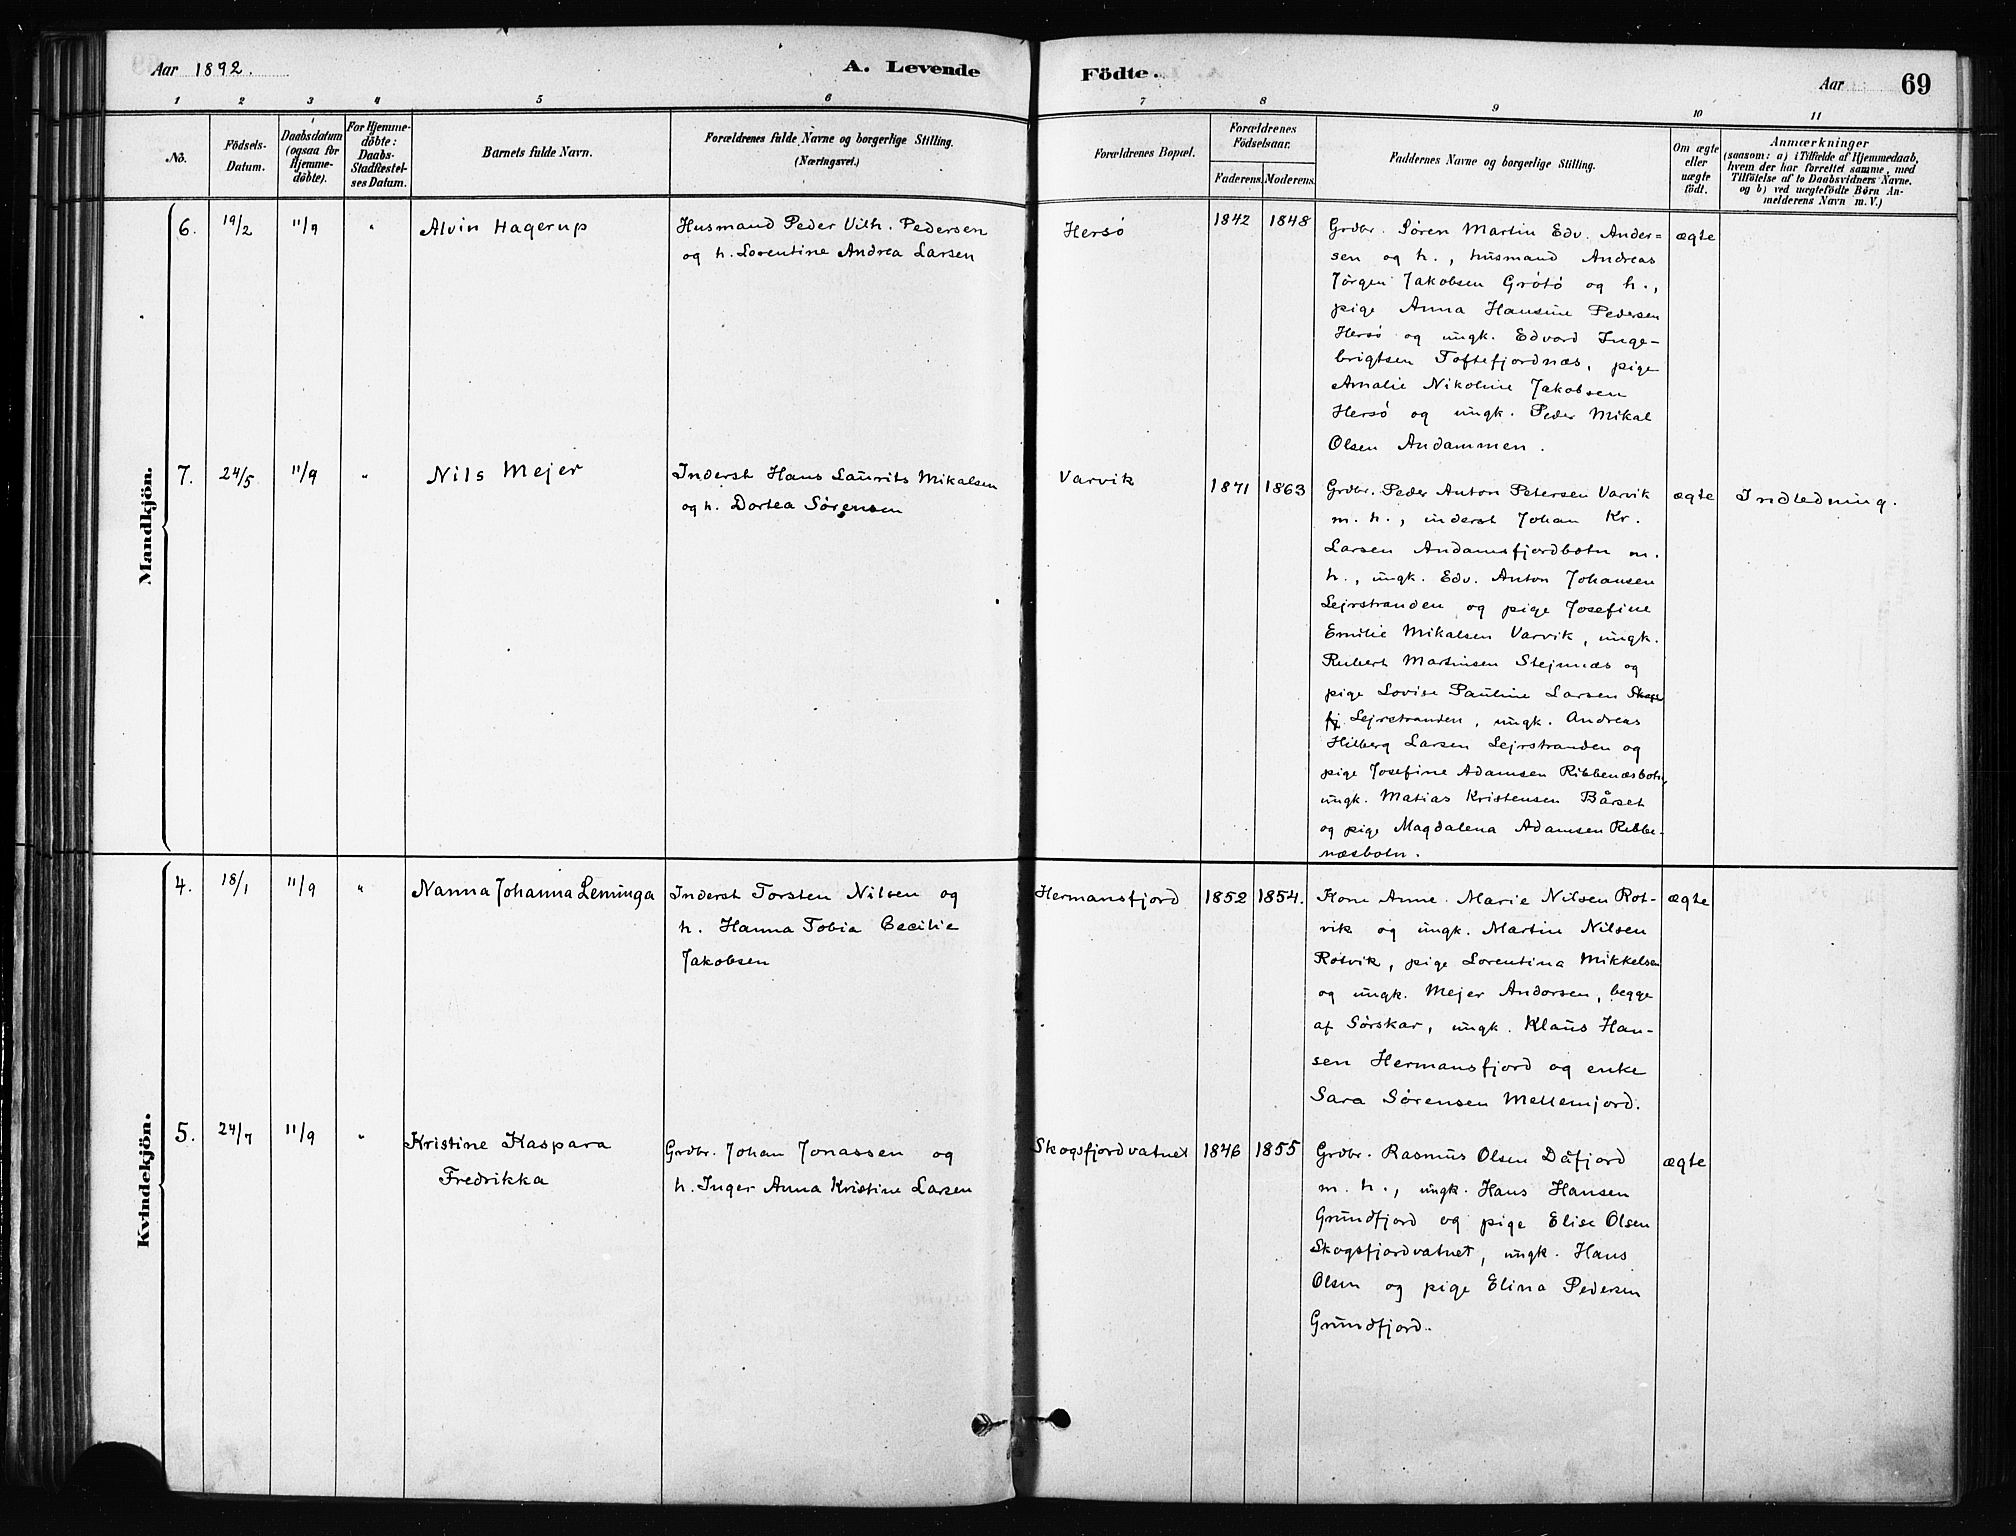 Aar 1892.
A. Levende
Födte.
Aar
69
1 2 3 4 5 6 7 8 9 10 11
No.
Födsels-
Datum.
Daabsdatum
(ogsaa for
Hjemme-
döbte).
For Hjemme-
döbte:
Daabs-
Stadfæstel-
ses Datum.
Barnets fulde Navn.
Forældrenes fulde Navne og borgerlige Stilling.
(Næringsvei.)
Forældrenes Bopæl.
Forældrenes
Födselsaar.
Faderens.
Moderens.
Faddernes Navne og borgerlige Stilling.
Om ægte
eller
uægte
födt.
Anmærkninger
(saasom: a) i Tilfælde af Hjemmedaab,
hvem der har forrettet samme, med
Tilföielse af to Daabsvidners Navne.
og b) ved uægtefödte Börn An-
melderens Navn m. V.)
Mandkjön.
6. 19/2 11/9 " Alvin Hagerup
Husmand Peder Vilh. Pedersen
og h. Lorentine Andrea Larsen
Hersø 1842 1848
Grdbr. Søren Martin Edv. Ander=
sen og h., husmand Andreas
Jørgen Jakobsen Grøtø og h.,
pige Anna Hansine Pedersen
Hersø og ungk. Edvard Inge-
brigtsen Toftefjordnæs, pige
Amalie Nikoline Jakobsen
Hersø og ungk. Peder Mikal
Olsen Andammen.
ægte
7. 24/5 11/9 " Nils Mejer
Inderst Hans Laurits Mikalsen
og h. Dortea Sørensen
Varvik 1871 1863
Grdbr. Peder Anton Petersen Varvik
m. h., inderst Johan Kr.
Larsen Andamsfjordbotn m.
h., ungk. Edv. Anton Johansen
Lejrstranden og pige Josefine
Emilie Mikalsen Varvik, ungk.
Rubert Martinsen Stejnnæs og
pige Lovise Pauline Larsen
Lejrstranden, ungk. Andreas
Hilberg Larsen Lejrstranden og
pige Josefine Adamsen Ribbenæsbotn,
ungk. Matias Kristensen Bårset
og pige Magdalena Adamsen Ribbe-
næsbotn.
ægte Indledning.
Kvindekjön.
4. 18/1 11/9 " Nanna Johanna Leminga
Inderst Torsten Nilsen og
h. Hanna Tobia Cecilie
Jakobsen
Hermansfjord 1852 1854.
Kone Anne Marie Nilsen Rot-
vik og ungk. Martin Nilsen
Rotvik, pige Lorentina Mikkelsen
og ungk. Mejer Andorsen, begge
af Sørskar, ungk. Klaus Han-
sen Hermansfjord og enke
Sara Sørensen Mellemjord.
ægte
5. 24/7 11/9 " Kristine Kaspara
Fredrikka
Grdbr. Johan Jonassen og
h. Inger Anna Kristine Larsen
Skogsfjordvatnet 1846 1855
Grdbr. Rasmus Olsen Dåfjord
m. h., ungk. Hans Hansen
Grundfjord og pige Elise Olsen
Skogsfjordvatnet, ungk. Hans
Olsen og pige Elina Pedersen
Grundfjord.
ægte